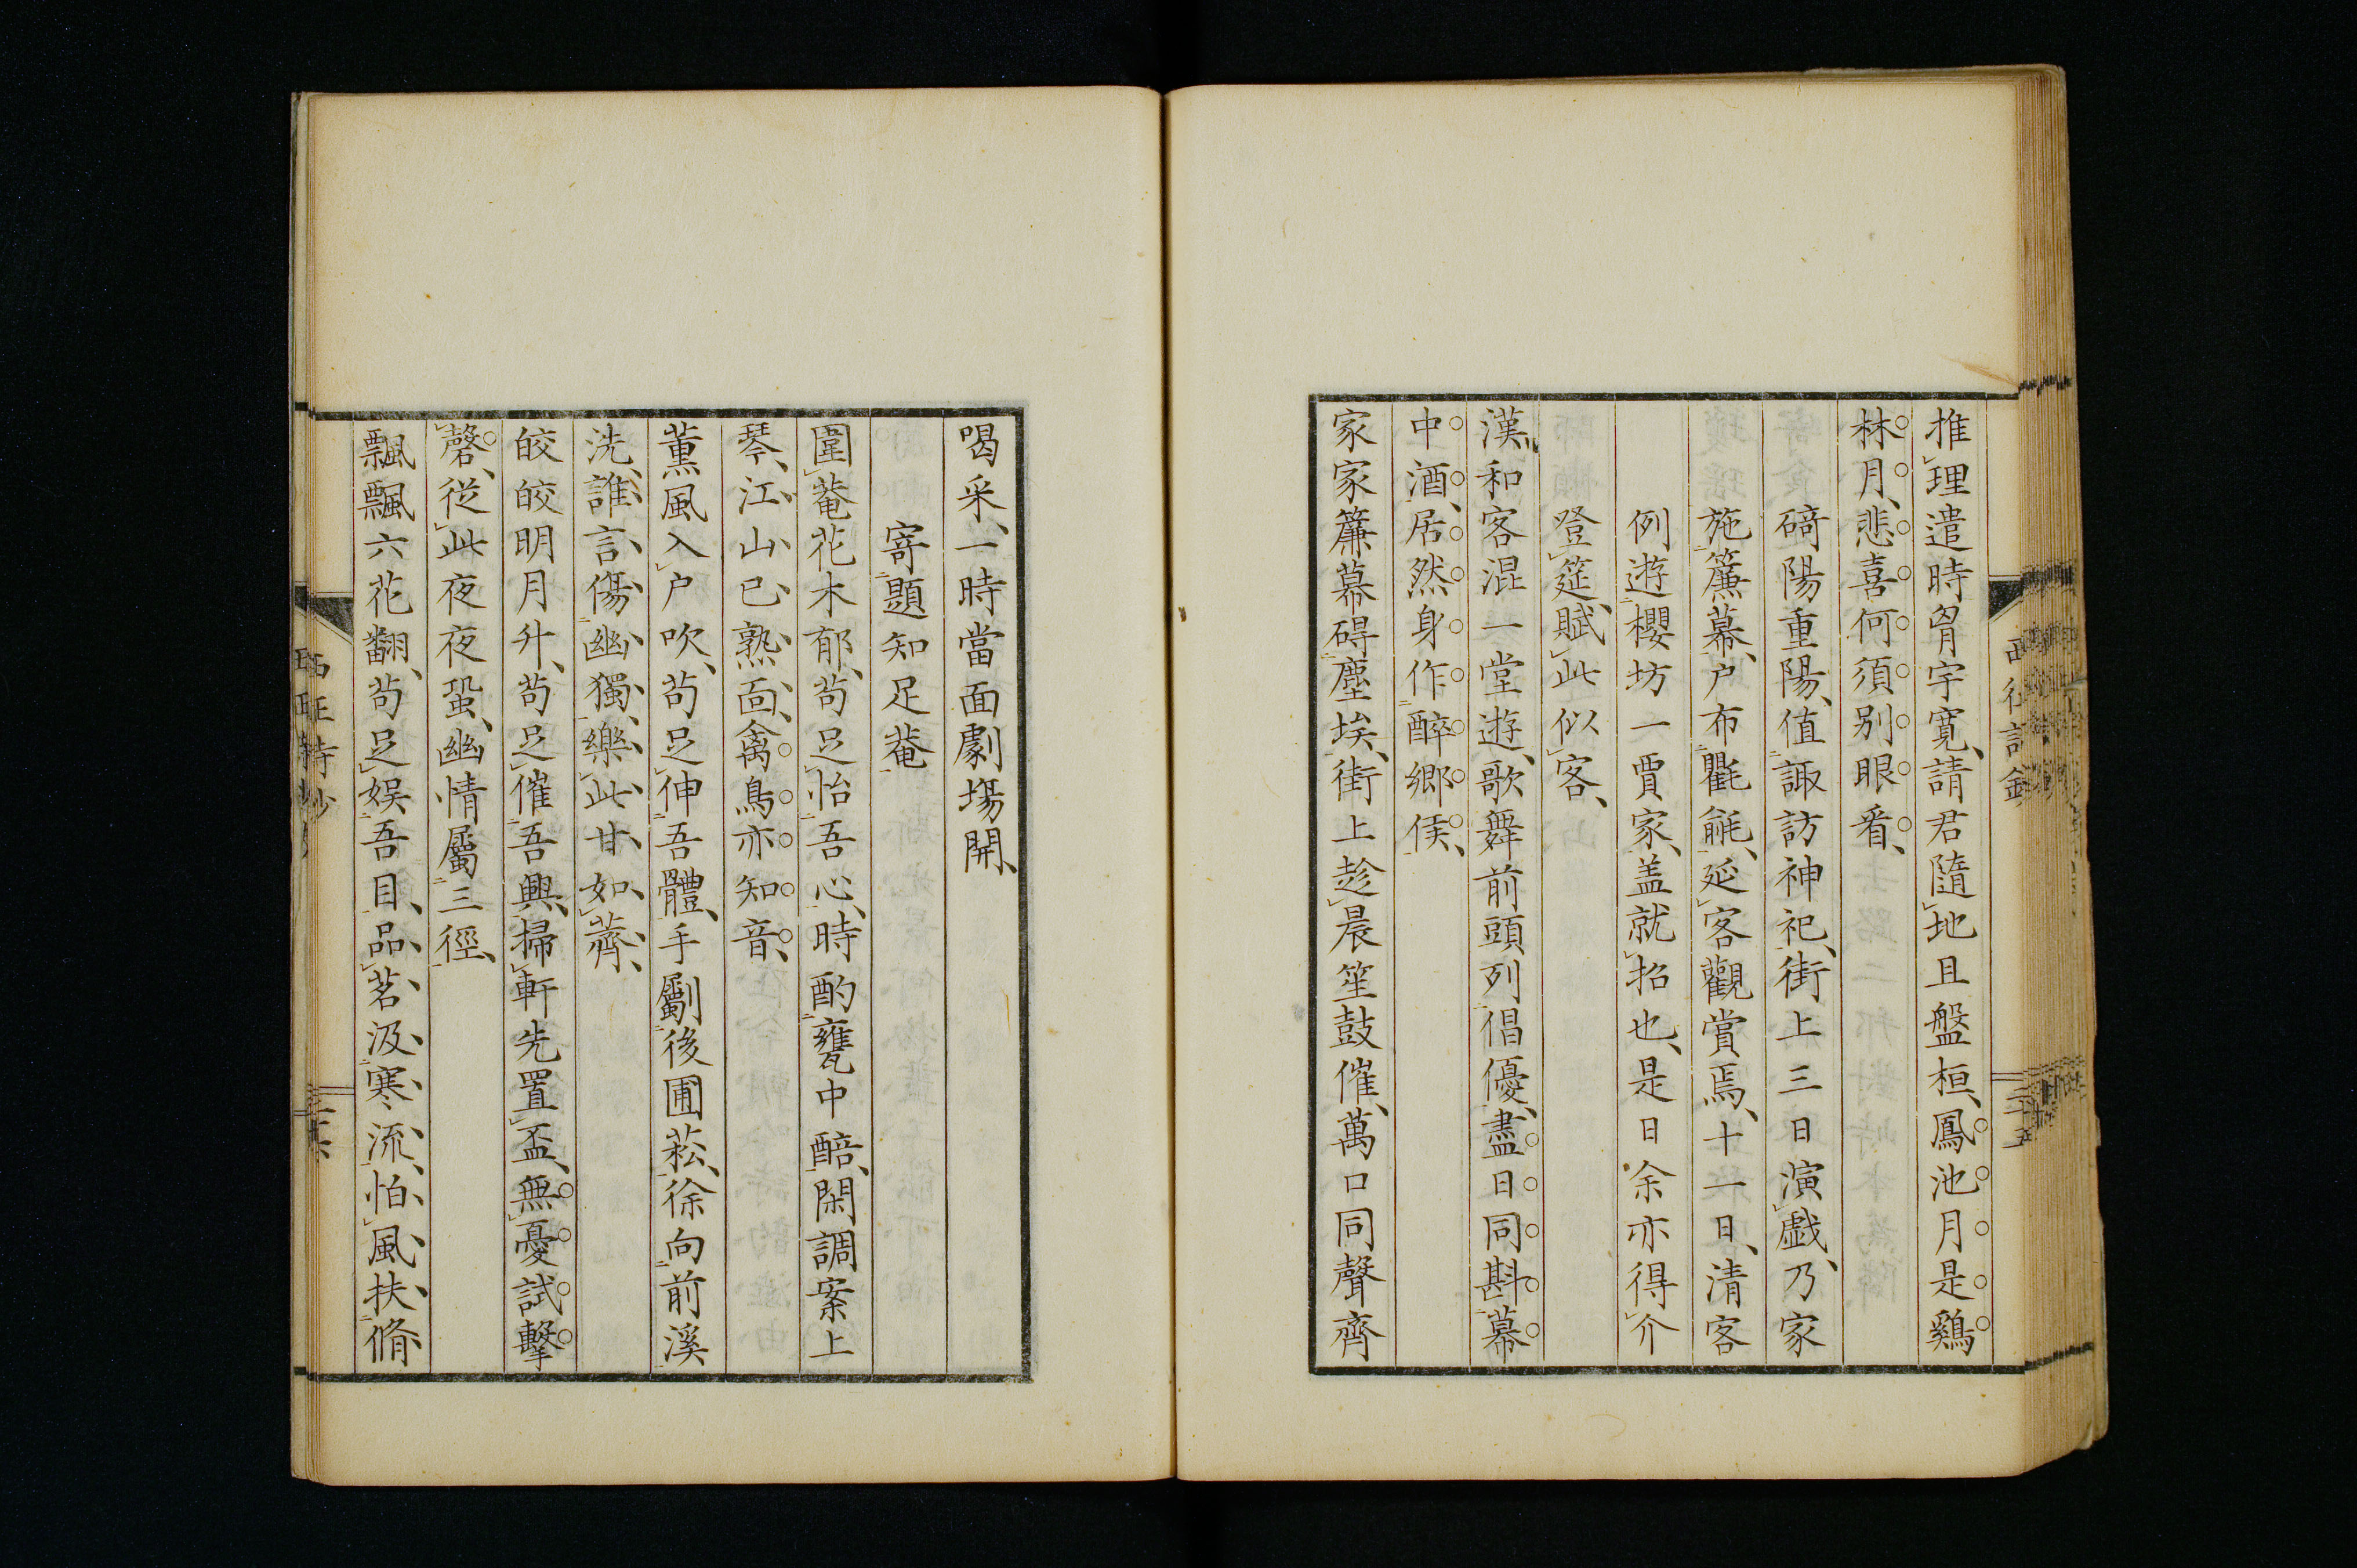 推理遣時胷宇寛、請君隨地且盤桓、鳳池月是鷄
林月、悲喜何須別眼看、
碕陽重陽、値諏訪神祀、街上三日演戯、乃家
施簾幕、戶布氍毹、延客觀賞焉、十一日、清客
例遊櫻坊一賈家、盖就招也、是日余亦得介
登筵、賦此似客、
漢和客混一堂遊、歌舞前頭列倡優、盡日同斟幕
中酒、居然身作醉鄉侯、
家家簾幕碍塵埃、街上趁晨笙鼓催、萬口同聲齊
喝采、一時當面劇塲開、
寄題知足菴
圍菴花木郁、苟足怡吾心、時酌甕中醅、閑調案上
琴、江山已熟面、禽鳥亦知音、
薰風入戶吹、苟足伸吾體、手劚後圃菘、徐向前溪
洗、誰言傷幽獨、樂此甘如薺、
皎皎明月升、苟足催吾興、掃軒先置盃、無憂試擊
磬、從此夜夜蛩、幽情屬三徑、
飄飄六花翻、苟足娱吾目、品茗汲寒流、怕風扶脩